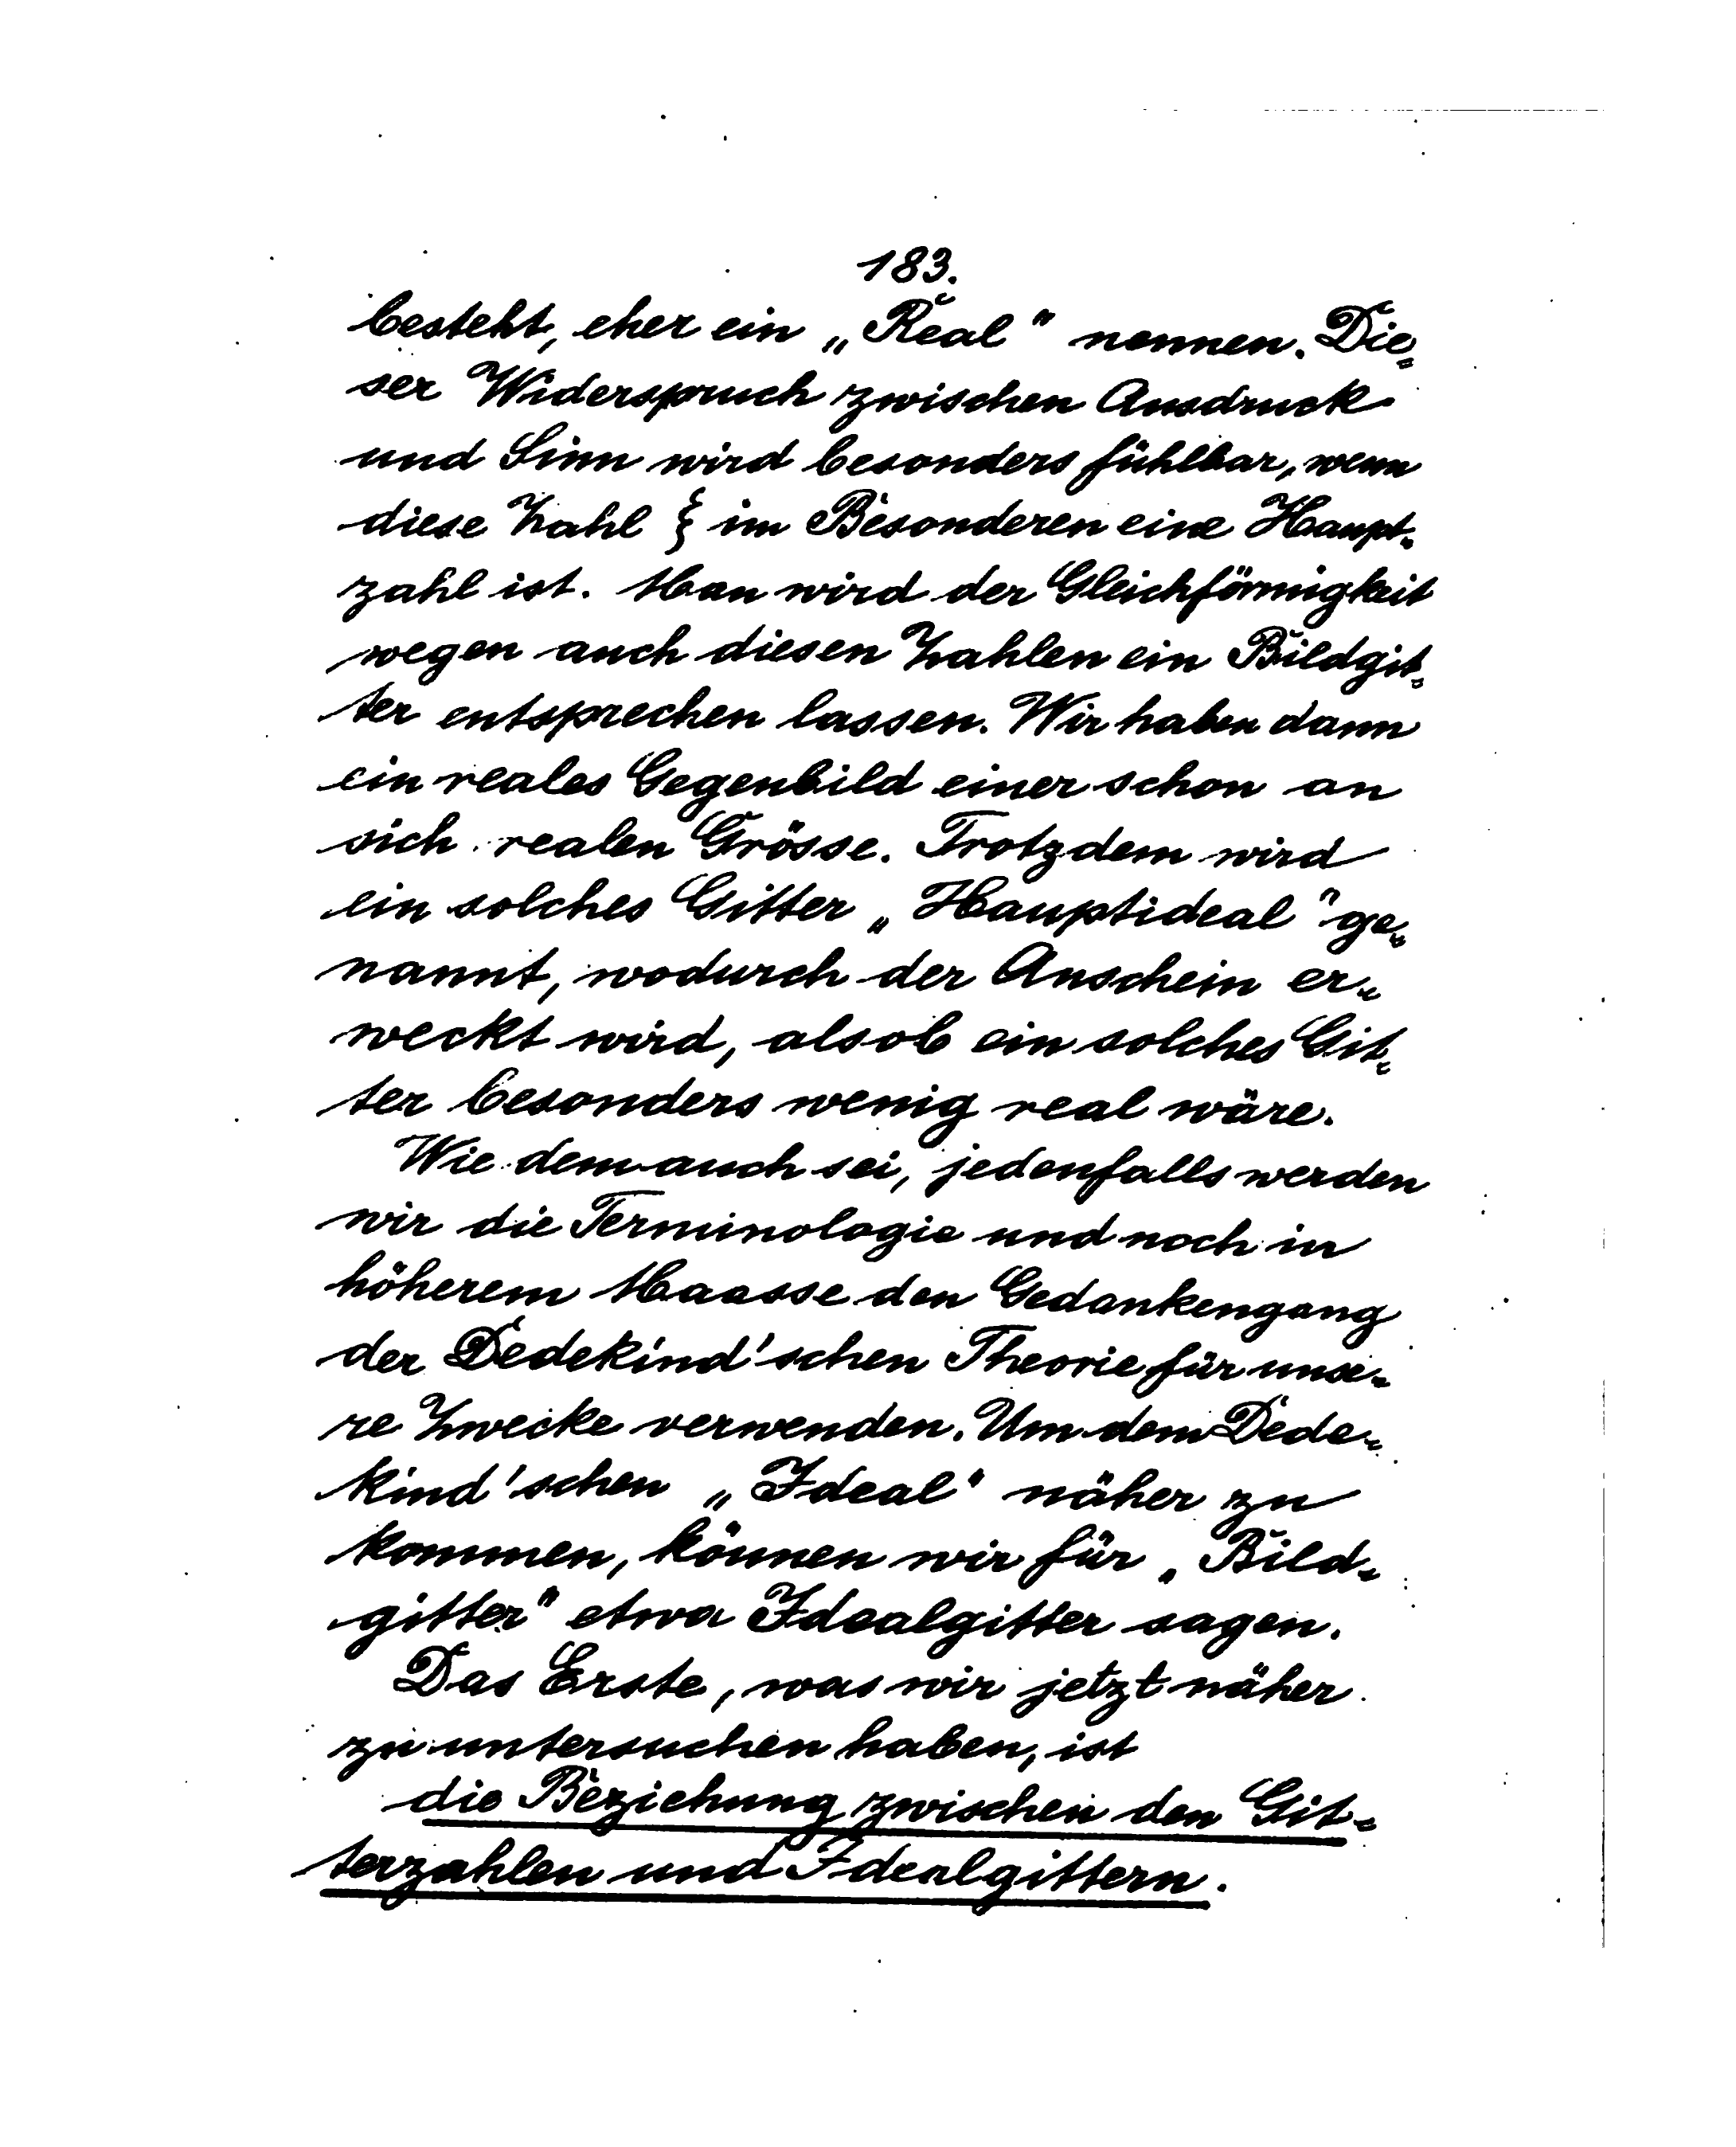 183.
besteht, eher ein „Real“ nennen. Die-
ser Widerspruch zwischen Ausdruck
und Sinn wird besonders fühlbar, wenn
diese Zahl ξ im Besonderen eine Haupt-
zahl ist. Man wird der Gleichförmigkeit
wegen auch diesen Zahlen ein Bildgit-
ter entsprechen lassen. Wir haben dann
ein reales Gegenbild einer schon an
sich realen Grösse. Trotzdem wird
ein solches Gitter „Hauptideal“ ge-
nannt, wodurch der Anschein er-
weckt wird, alsob ein solches Git-
ter besonders wenig real wäre.
Wie dem auch sei, jedenfalls werden
wir die Terminologie und noch in
höherem Maasse den Gedankengang
der Dedekind'schen Theorie für unse-
re Zwecke verwenden. Um dem Dede-
kind'schen „Ideal“ näher zu
kommen, können wir für „Bild-
gitter“ etwa Idealgitter sagen.
Das Erste, was wir jetzt näher
zu untersuchen haben, ist
die Beziehung zwischen den Git-
terzahlen und Idealgittern.